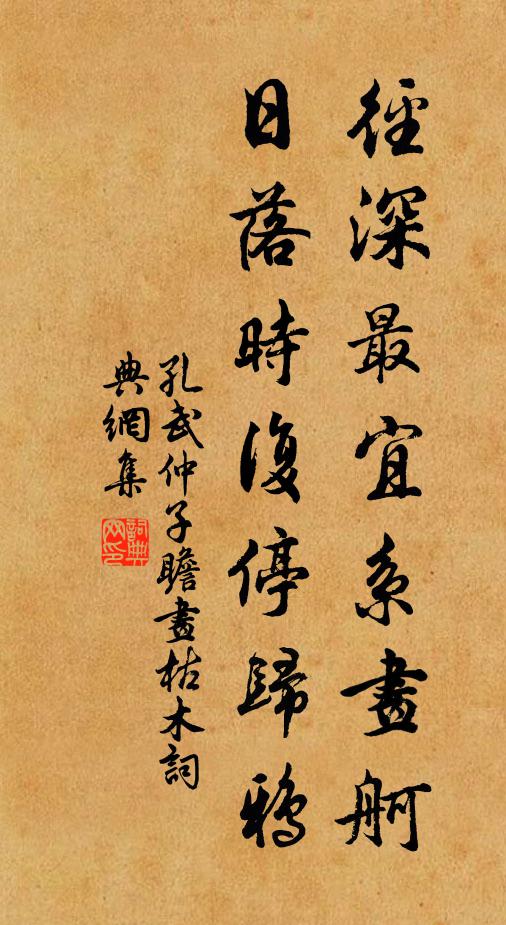 徑深最宜系畫舸
日落時復停歸鴉
孔武仲子瞻畫枯木詞
典網集
詞典網印